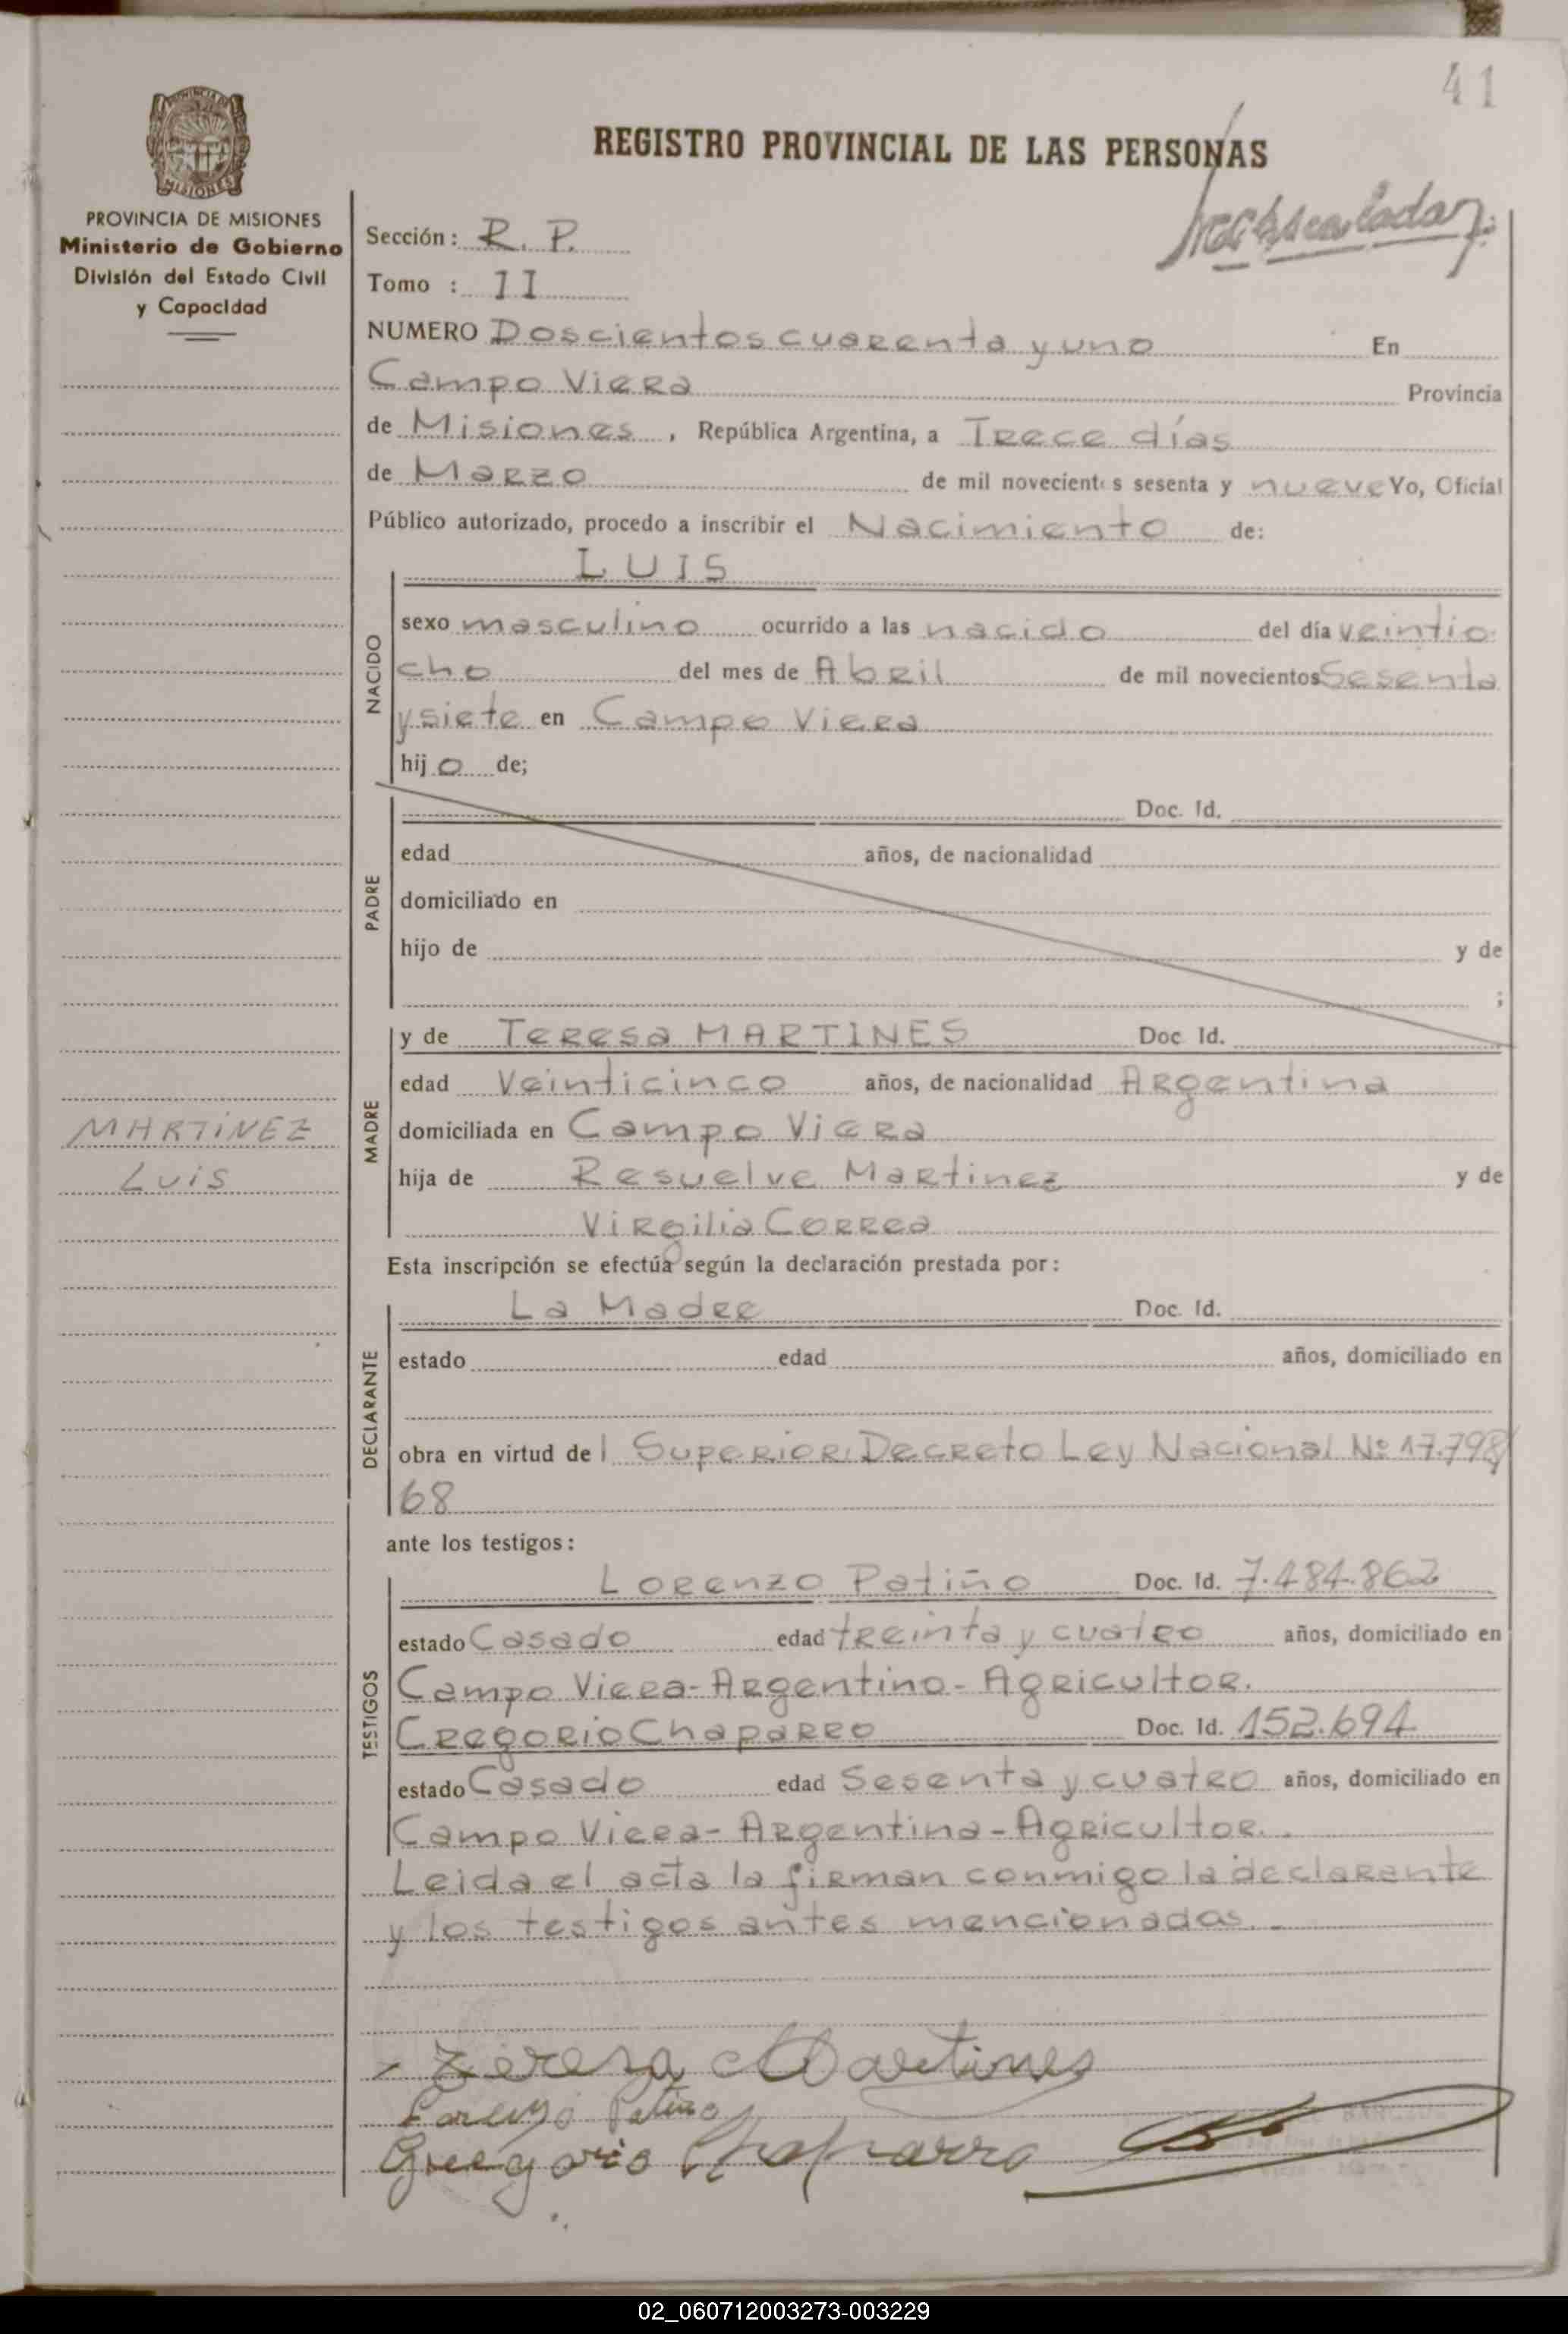 41
REGISTRO PROVINCIAL DE LAS PERSONAS
MISIONES
PROVINCIA DE MISIONES
Ministerio de Gobierno
División del Estado Civil
y Capacidad
Sección: R. P.
Tomo : II
NUMERO Doscientos cuarenta y uno En
Campo Viera Provincia
de Misiones, República Argentina, a Trece días
de Marzo de mil novecientos sesenta y nueve Yo, Oficial
Público autorizado, procedo a inscribir el Nacimiento de:
NACIDO
LUIS
sexo masculino ocurrido a las nacido del día veintio
cho del mes de Abril de mil novecientos Sesenta
y siete en Campo Viera
hijo de;
PADRE
Doc. Id.
edad años, de nacionalidad
domiciliado en
hijo de y de
;
MADRE
y de Teresa MARTINES Doc. Id.
edad Veinticinco años, de nacionalidad Argentina
MARTINEZ
LUIS
domiciliada en Campo Viera
hija de Resuelve Martinez y de
Virgilia Correa
Esta inscripción se efectúa según la declaración prestada por:
DECLARANTE
La Madre Doc. Id.
estado edad años, domiciliado en
obra en virtud del Superior Decreto Ley Nacional Nº 17.798/
68
ante los testigos:
TESTIGOS
Lorenzo Patiño Doc. Id. 7.484.862
estado Casado edad treinta y cuatro años, domiciliado en
Campo Viera-Argentino-Agricultor.
Gregorio Chaparro Doc. Id. 152.694
estado Casado edad Sesenta y cuatro años, domiciliado en
Campo Viera-Argentina-Agricultor.
Leida el acta la firman conmigo la declarante
y los testigos antes mencionados.
Teresa Martines
Lorenzo Patiño
Gregorio Chaparro
02_060712003273-003229